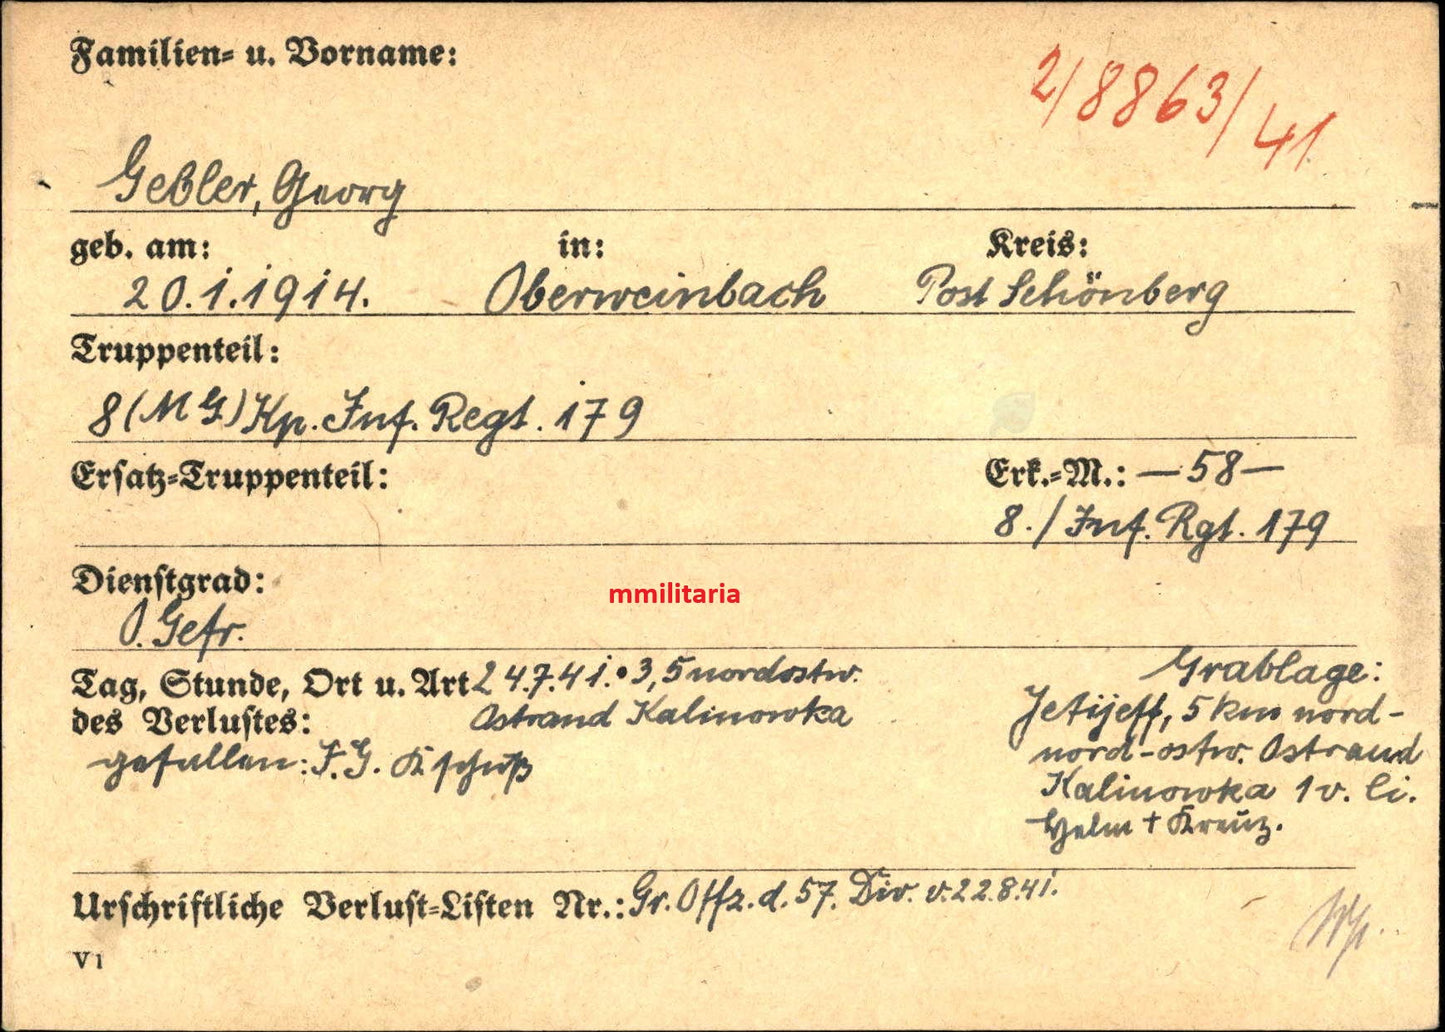 Familien- u. Vorname:
2/8863/41
Gebler, Georg
geb. am: in: Kreis:
20.1.1914. Oberweinbach Post Schönberg
Truppenteil:
8(MG)Kp. Inf. Regt. 179
Ersatz-Truppenteil: Erk.-M.: —58—
8./Inf. Rgt. 179
Dienstgrad:
mmilitaria
O. Gefr.
Tag, Stunde, Ort u. Art 24.7.41. 3,5 nordostw.
des Verlustes: Ostrand Kalinowka
gefallen: I.G. Kschuß
Grablage:
5 km nord-
nord-ostw. Ostrand
Kalinowka 1 v. li.
Helm + Kreuz.
Urschriftliche Verlust-Listen Nr.: Gr. Offz. d. 57. Div. v. 22.8.41.
V1